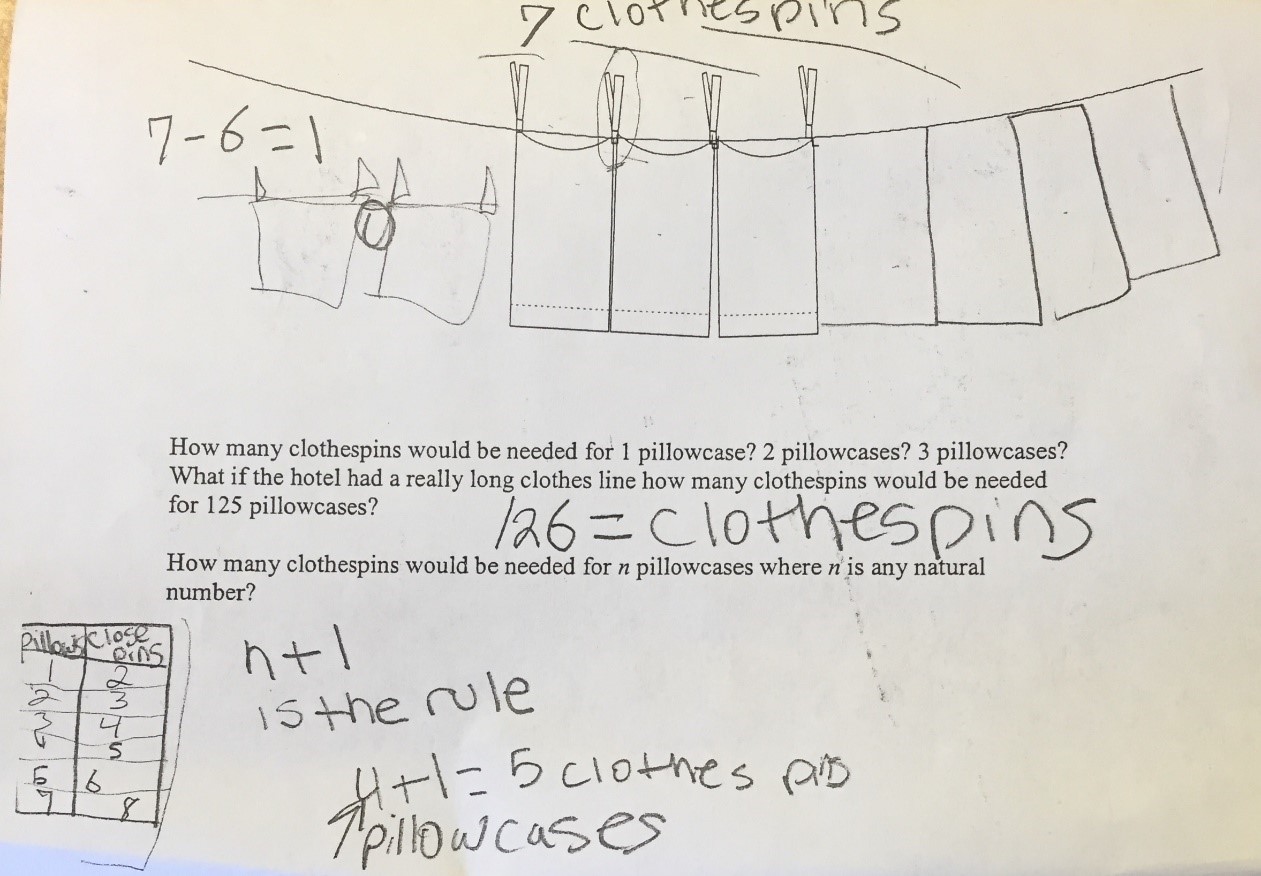 7 clothespins
7-6=1
1
How many clothespins would be needed for 1 pillowcase? 2 pillowcases? 3 pillowcases?
What if the hotel had a really long clothes line how many clothespins would be needed
for 125 pillowcases?
126 = clothespins
How many clothespins would be needed for n pillowcases where n is any natural
number?
Pillows Close
pins
1 2
2 3
3 4
5
6
7 8
n+1
is the rule
4+1= 5 clothes pins
↑pillowcases